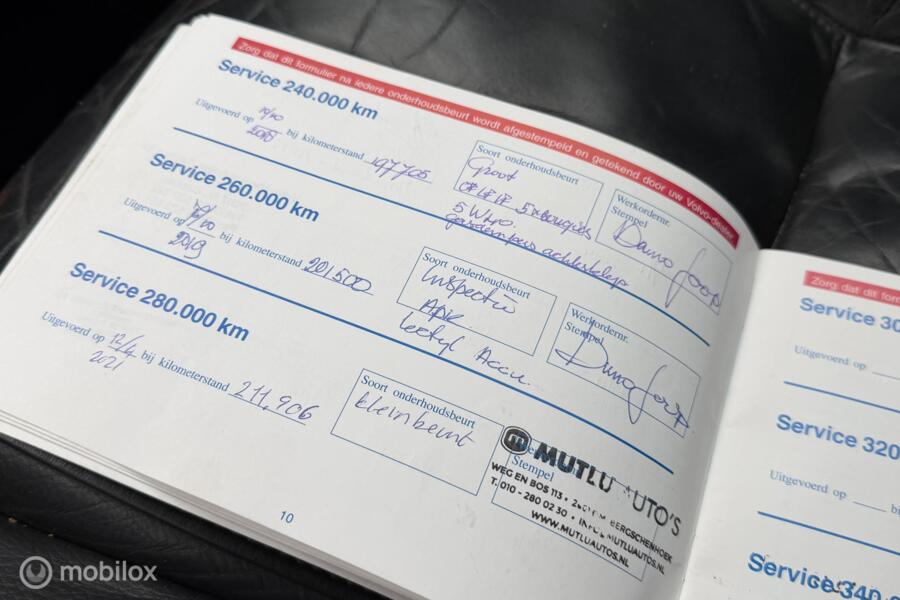 Zorg dat dit formulier na iedere onderhoudsbeurt wordt afgestempeld en getekend door uw Volvo-dealer
Service 240.000 km
Uitgevoerd op 2018 bij kilometerstand 197705
Soort onderhoudsbeurt
Groot
5x bougies
5W40.
achterklep
Werkordernr.
Stempel
Service 260.000 km
Uitgevoerd op 2019 bij kilometerstand 201500
Soort onderhoudsbeurt
Inspectie
APK
Accu.
Werkordernr.
Stempel
Service 280.000 km
Uitgevoerd op 12/4 2021 bij kilometerstand 211,906
Soort onderhoudsbeurt
kleinbeurt
Stempel
MUTLU AUTO'S
WEG EN BOS 113 • BERGSCHENHOEK
T. 010 - 280 02 30 • MUTLUAUTOS.NL
WWW.MUTLUAUTOS.NL
10
Zorg dat dit
Service 30
Uitgevoerd op
Service 320
Uitgevoerd op
Service 340
mobilox